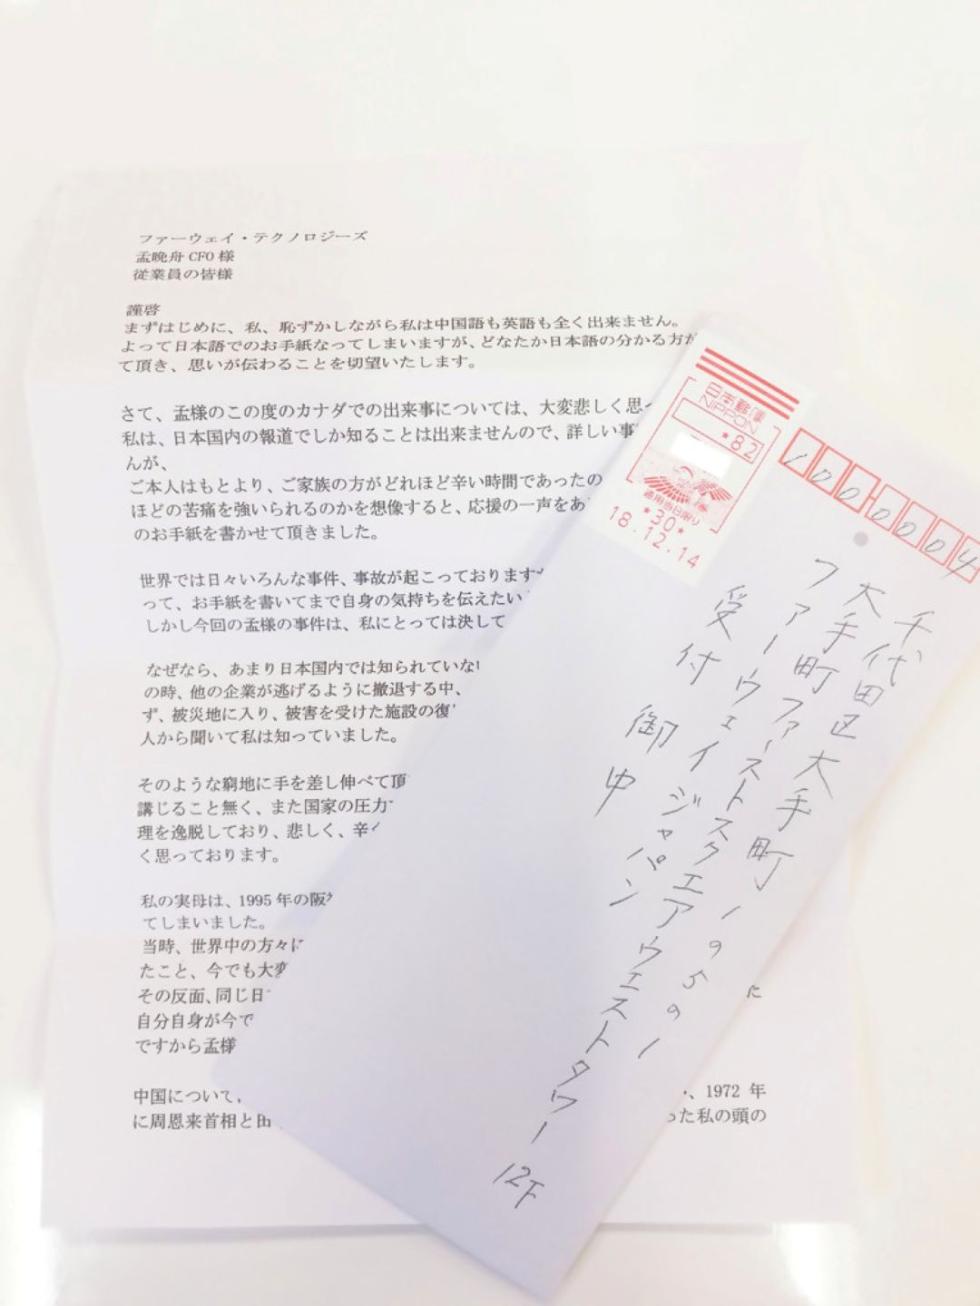 ファーウェイ・テクノロジーズ
孟晩舟 CFO 様
従業員の皆様
謹啓
まずはじめに、私、恥ずかしながら私は中国語も英語も全く出来ません。
よって日本語でのお手紙なってしまいますが、どなたか日本語の分かる方が
て頂き、思いが伝わることを切望いたします。
さて、孟様のこの度のカナダでの出来事については、大変悲しく思っ
私は、日本国内の報道でしか知ることは出来ませんので、詳しい事
んが、
ご本人はもとより、ご家族の方がどれほど辛い時間であったの
ほどの苦痛を強いられるのかを想像すると、応援の一声をあ
のお手紙を書かせて頂きました。
世界では日々いろんな事件、事故が起こっております
って、お手紙を書いてまで自身の気持ちを伝えたい
しかし今回の孟様の事件は、私にとっては決して
なぜなら、あまり日本国内では知られていない
の時、他の企業が逃げるように撤退する中、
ず、被災地に入り、被害を受けた施設の復
人から聞いて私は知っていました。
そのような窮地に手を差し伸べて頂
講じること無く、また国家の圧力
理を逸脱しており、悲しく、辛く
く思っております。
私の実母は、1995 年の阪
てしまいました。
当時、世界中の方々に
たこと、今でも大変
その反面、同じ日
自分自身が今で
ですから孟様
に
中国について、
、1972 年
に周恩来首相と田
った私の頭の
日本郵便
NIPPON
*82
適用当日限り
*30*
18.12.14
100-0004
千代田区大手町1-5-1
大手町ファーストスクエアウエストタワー12F
ファーウェイジャパン
受付 御中